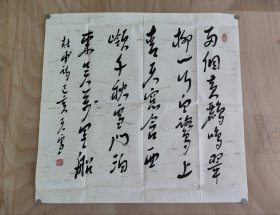 两個黄鸝鳴翠
柳一行白鷺上
青天窓含西
嶺千秋雪门泊
東吴萬里船
杜甫詩己亥